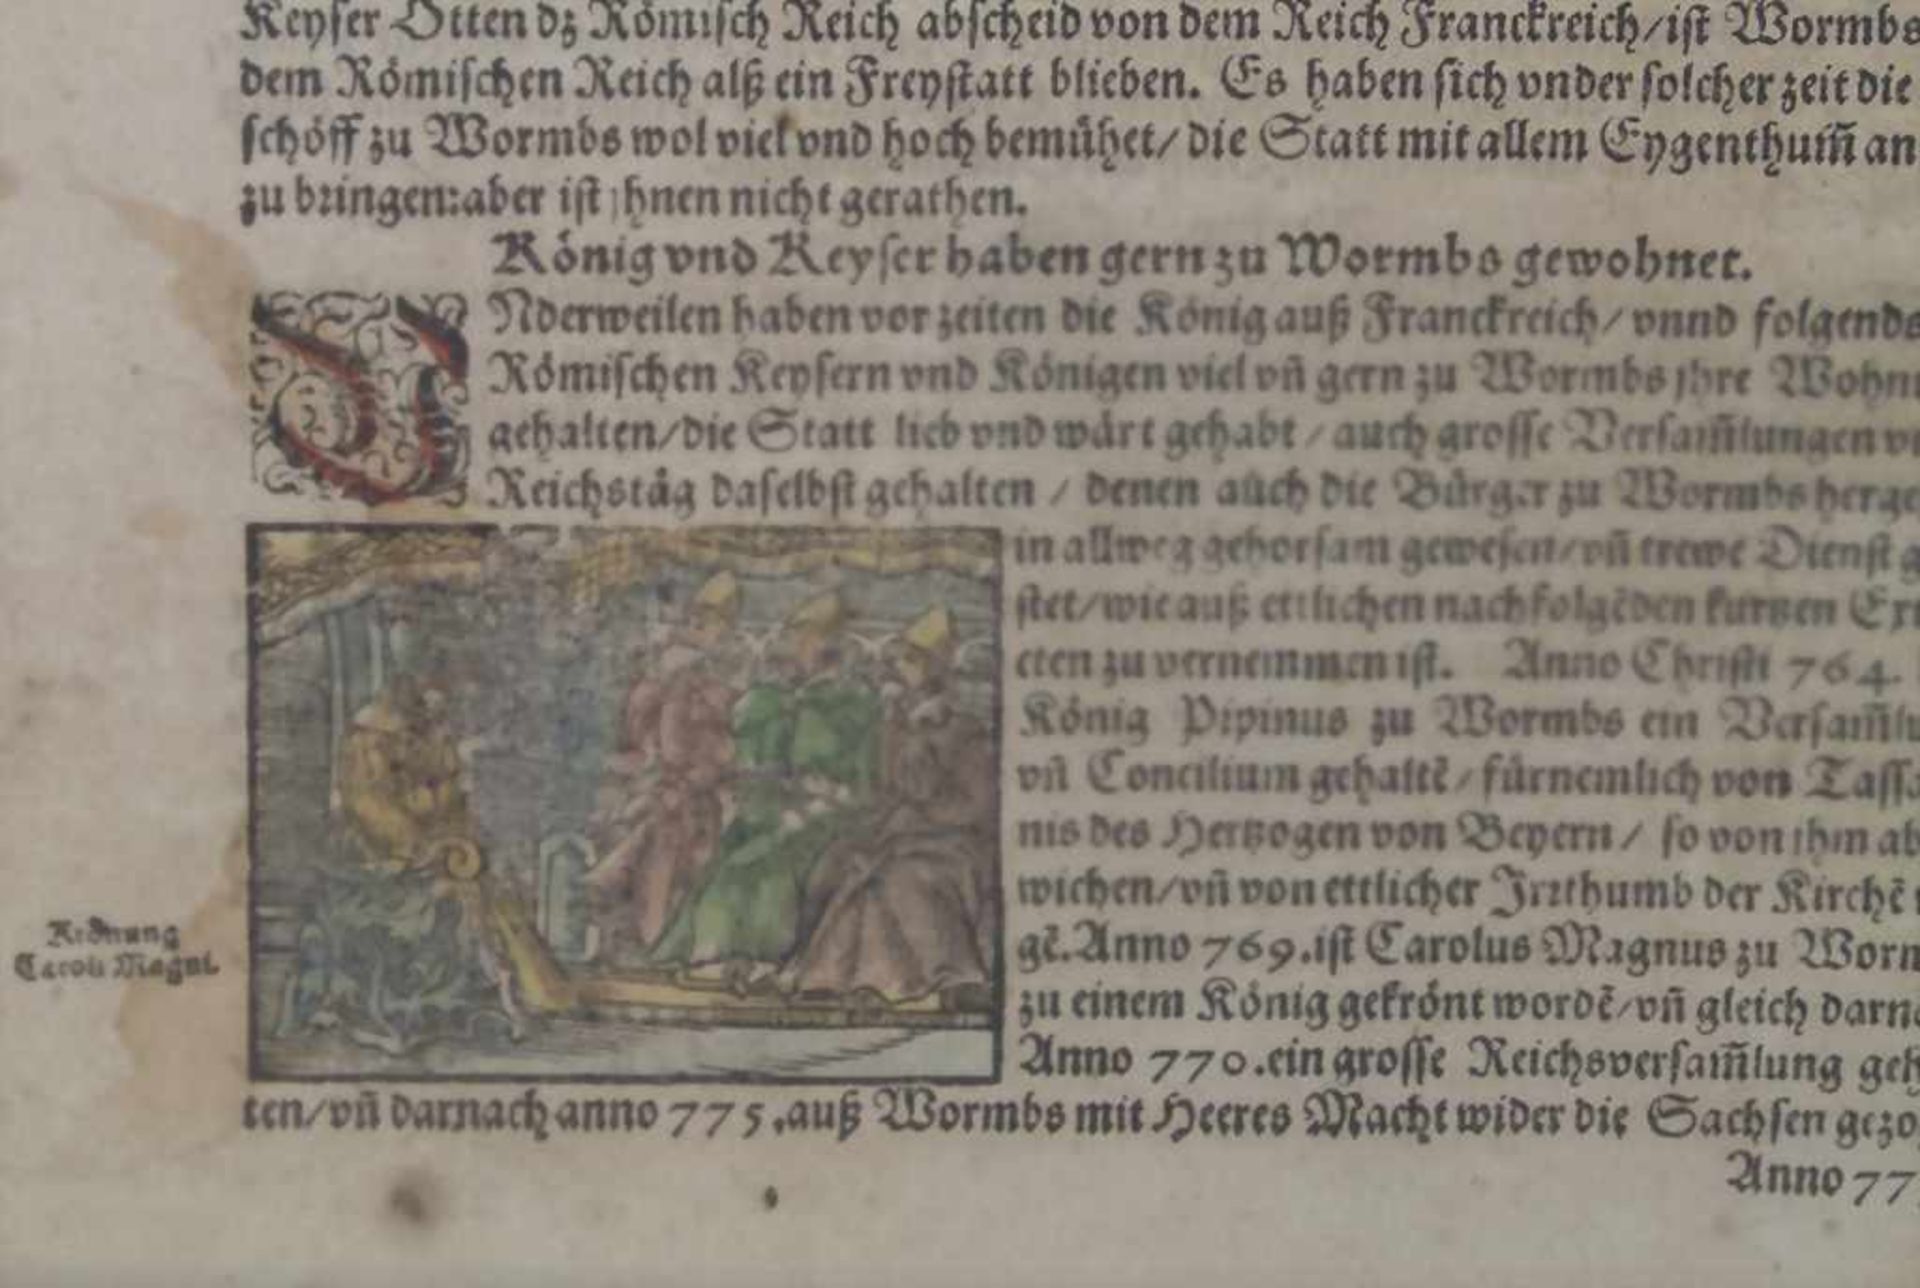 Keyser Otten dz Römisch Reich abscheid von dem Reich Franckreich/ist Wormbs
dem Römischen Reich alß ein Freystatt blieben. Es haben sich vnder solcher zeit die
schöff zu Wormbs wol viel vnd hoch bemühet/die Statt mit allem Eygenthum̃ an
zu bringen:aber ist jhnen nicht gerathen.
König vnd Keyser haben gern zu Wormbs gewohnet.
VNderweilen haben vor zeiten die König auß Franckreich/vnnd folgends
Römischen Keysern vnd Königen viel vñ gern zu Wormbs jhre Wohn
gehalten/die Statt lieb vnd wärt gehabt/auch grosse Versam̃lungen v
Reichståg daselbst gehalten/denen auch die Bürger zu Wormbs herge
in allweg gehorsam gewesen/vñ trewe Dienst g
stet/wie auß ettlichen nachfolgẽden kurtzen Ext
cten zu vernemmen ist. Anno Christi 764.
König Pipinus zu Wormbs ein Versam̃lu
vñ Concilium gehaltẽ/fürnemlich von Tassi
nis des Hertzogen von Beyern/so von jhm ab
wichen/vñ von ettlicher Irrthumb der Kirchẽ
gẽ.Anno 769.ist Carolus Magnus zu Worm
zu einem König gekrönt wordẽ/vñ gleich darna
Anno 770.ein grosse Reichsversam̃lung geh
ten/vñ darnach anno 775.auß Wormbs mit Heeres Macht wider die Sachsen gezo
Anno 77
Krönung
Caroli Magni.